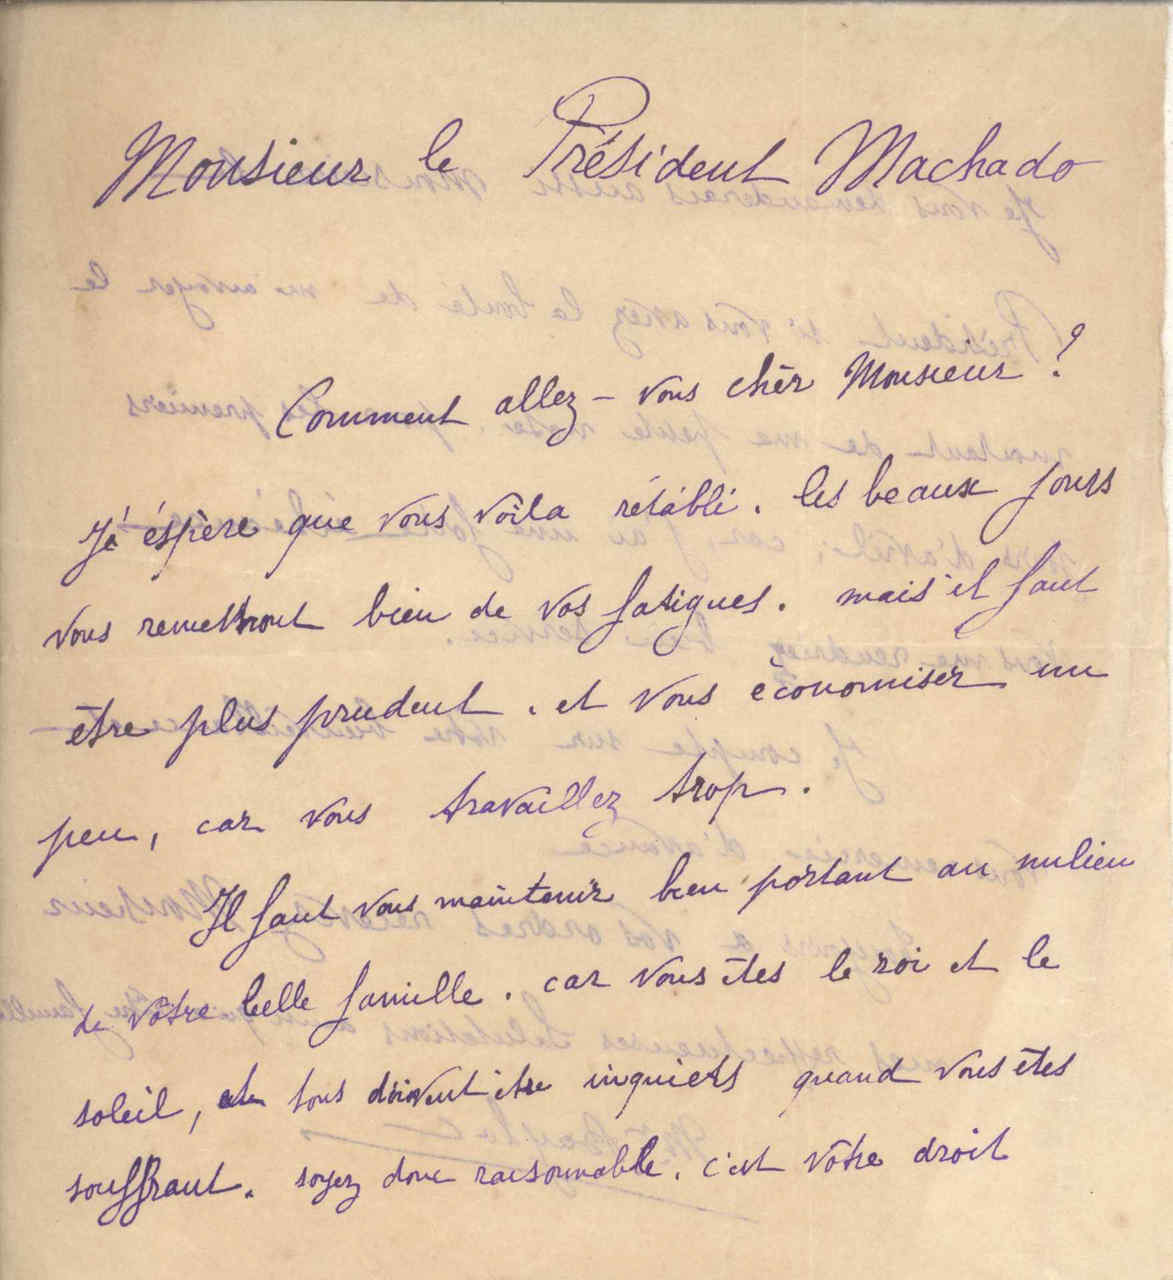 Monsieur le Président Machado
Comment allez-vous chèr Monsieur ?
J'éspère que vous voila rétabli. les beaux jours
vous remettront bien de vos fatigues. mais il faut
être plus prudent. et vous économiser un
peu, car vous travaillez trop.
Il faut vous maintenir bien portant au milieu
de vôtre belle famille. car vous êtes le roi et le
soleil, et tous doivent être inquiets quand vous êtes
souffrant. soyez donc raisonnable. c'est vôtre droit